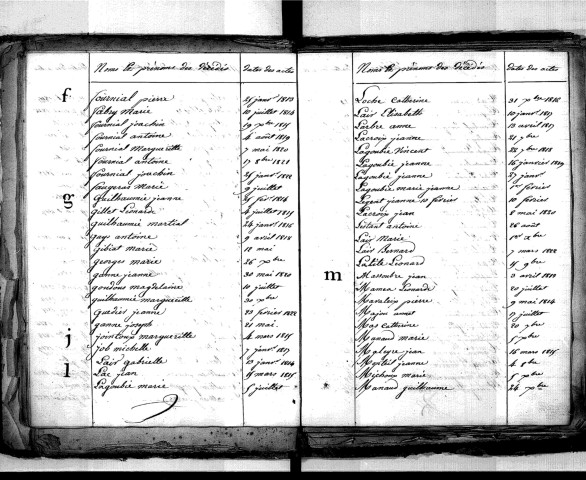 Noms et prénoms des décédés Dates des actes
f
fournial pierre 25 janv. 1813
fabry Marie 10 juillet 1814
fournial joachin 19 xbre 1815
fournial antoine 6 août 1819
fournial Marguerite 7 mai 1820
fournial antoine 17 9bre 1821
fournial joachin 25 janv. 1822
faugeras Marie 9 juillet
g
Guilhaumie jeanne
Gillet Léonard 4 juillet 1815
guilhaumie martial 24 janv. 1816
guy antoine 9 avril 1818
Gibiat marie 12 mai
Georges marie 26 xbre
ganne jeanne 30 mai 1820
gondous magdelaine 10 juillet
guilhaumie marguerite 30 xbre
Guedier jeanne 23 février 1822
ganne joseph 21 mai
j
jointoup marguerite 4 mars 1815
job michelle 7 janv. 1817
l
Lair gabrielle 12 janv. 1814
Lac jean 6 mars 1815
Lagoubie marie 5 juillet
Noms et prénoms des décédés Dates des actes
Loche Catherine 31 xbre 1816
Lair Elizabeth 10 janv. 1817
Larbre anne 13 avril 1817
Lacroix jeanne
Lagoubie Vincent
Lagoubie jeanne 16 janvier 1819
Lagoubie jeanne 27 janv.
Lagoubie marie jeanne 1er février
Legent jeanne 10 février 10 février
Lacroix jean 8 mai 1820
Listant antoine 26 août
Lair Marie
Lair Bernard 7 mars 1822
Latite Léonard
m
Massoubre jean 2 avril 1812
Mamea Léonard 20 juillet
Mazeloup pierre 9 mai 1814
Majou annet 17 juillet
Mas Catherine 20 9bre
Manaud marie 5 xbre
Maleyre jean 16 mars 1815
Monteil jeanne 4 9bre
Michoux marie 5 xbre
Manaud guilhaume 26 xbre